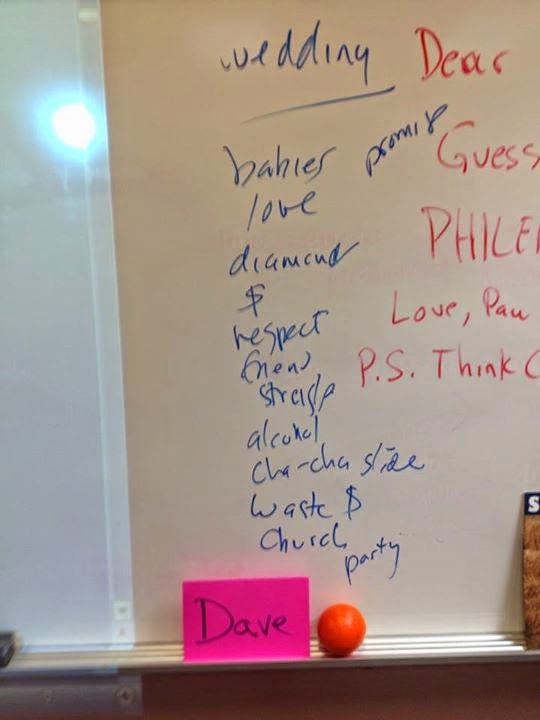 wedding
babies promise
love
diamond
$
respect
friend
alcohol
cha-cha slide
waste $
church
party
Dear
Guess
PHILE
Love, Pau
P.S. Think
Dave
S